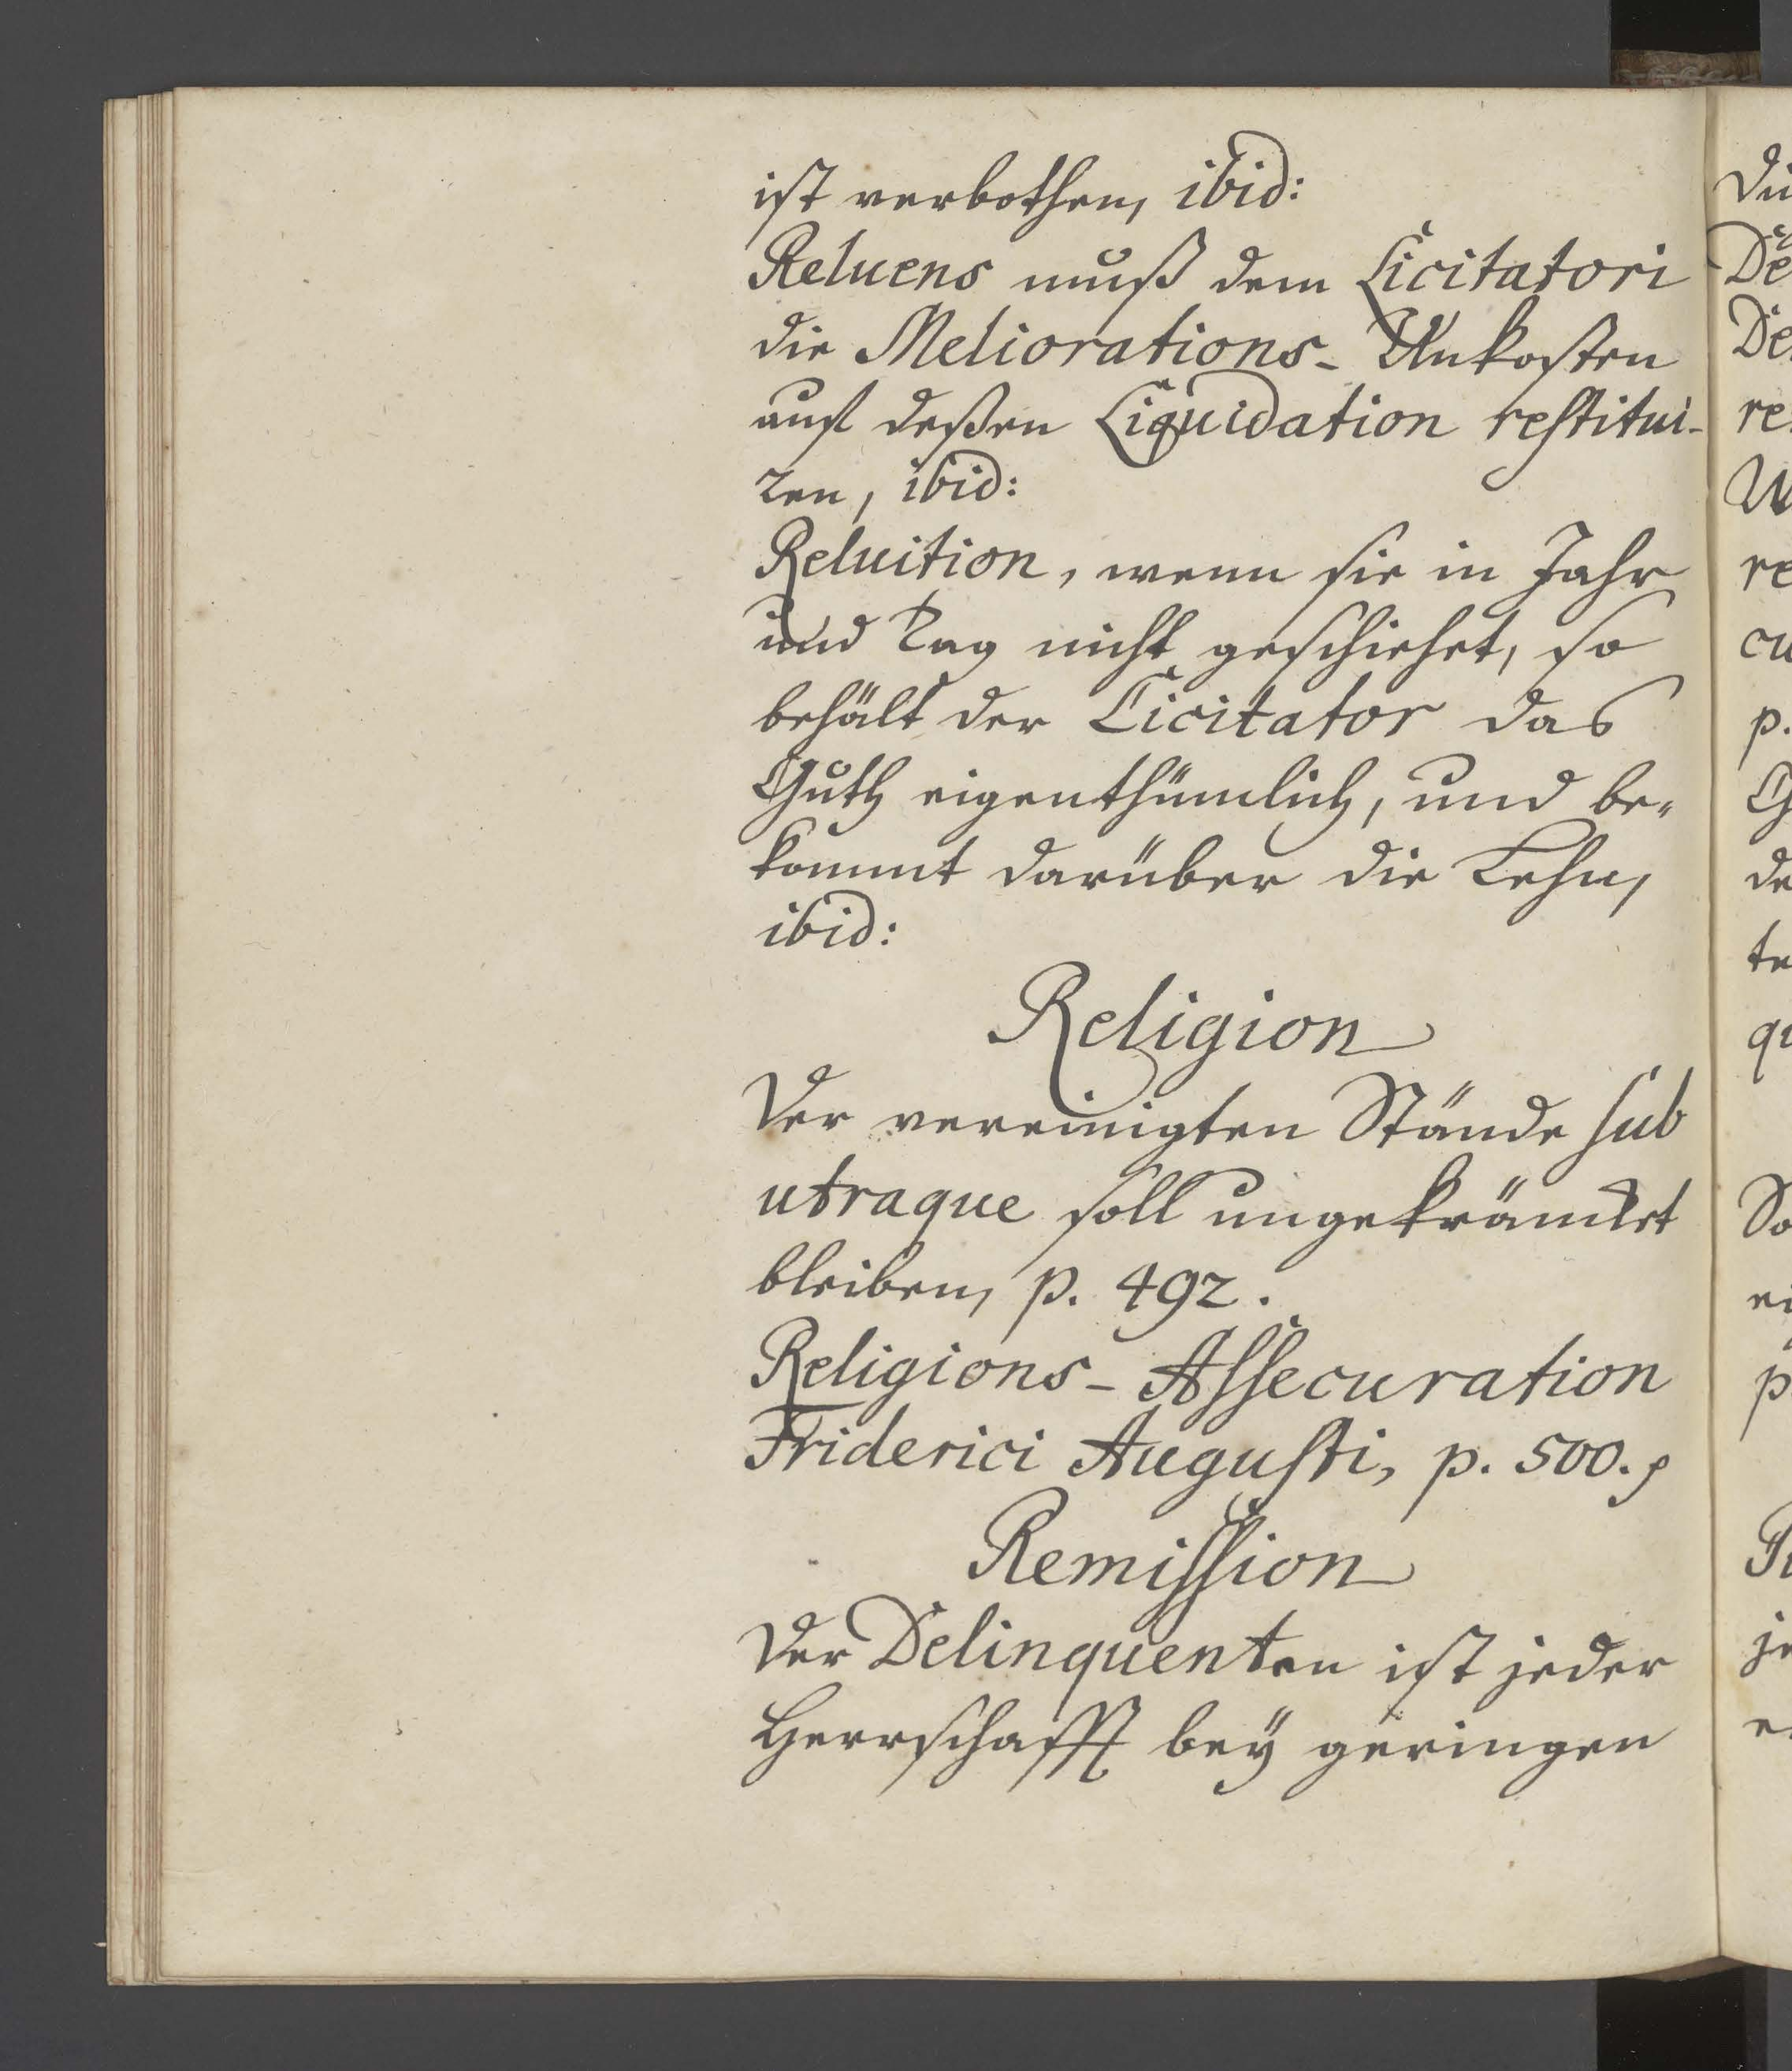 ist verbothen, ibid:
Reluens muß dem Licitatori
die Meliorations-Unkosten
auf deßen Liquidation restitui-
ren, ibid:
Reluition, wenn sie in Jahr
und Tag nicht geschiehet, so
behält der Licitator das
Guth eigenthümlich, und be-
kommt darüber die Lehn,
ibid:
Religion
Der vereinigten Stände sub
utraque soll ungekräncket
bleiben, p. 492.
Religions-Assecuration
Friderici Augusti, p. 500.
Remission
Der Delinquenten ist jeder
Herrschafft beÿ geringen